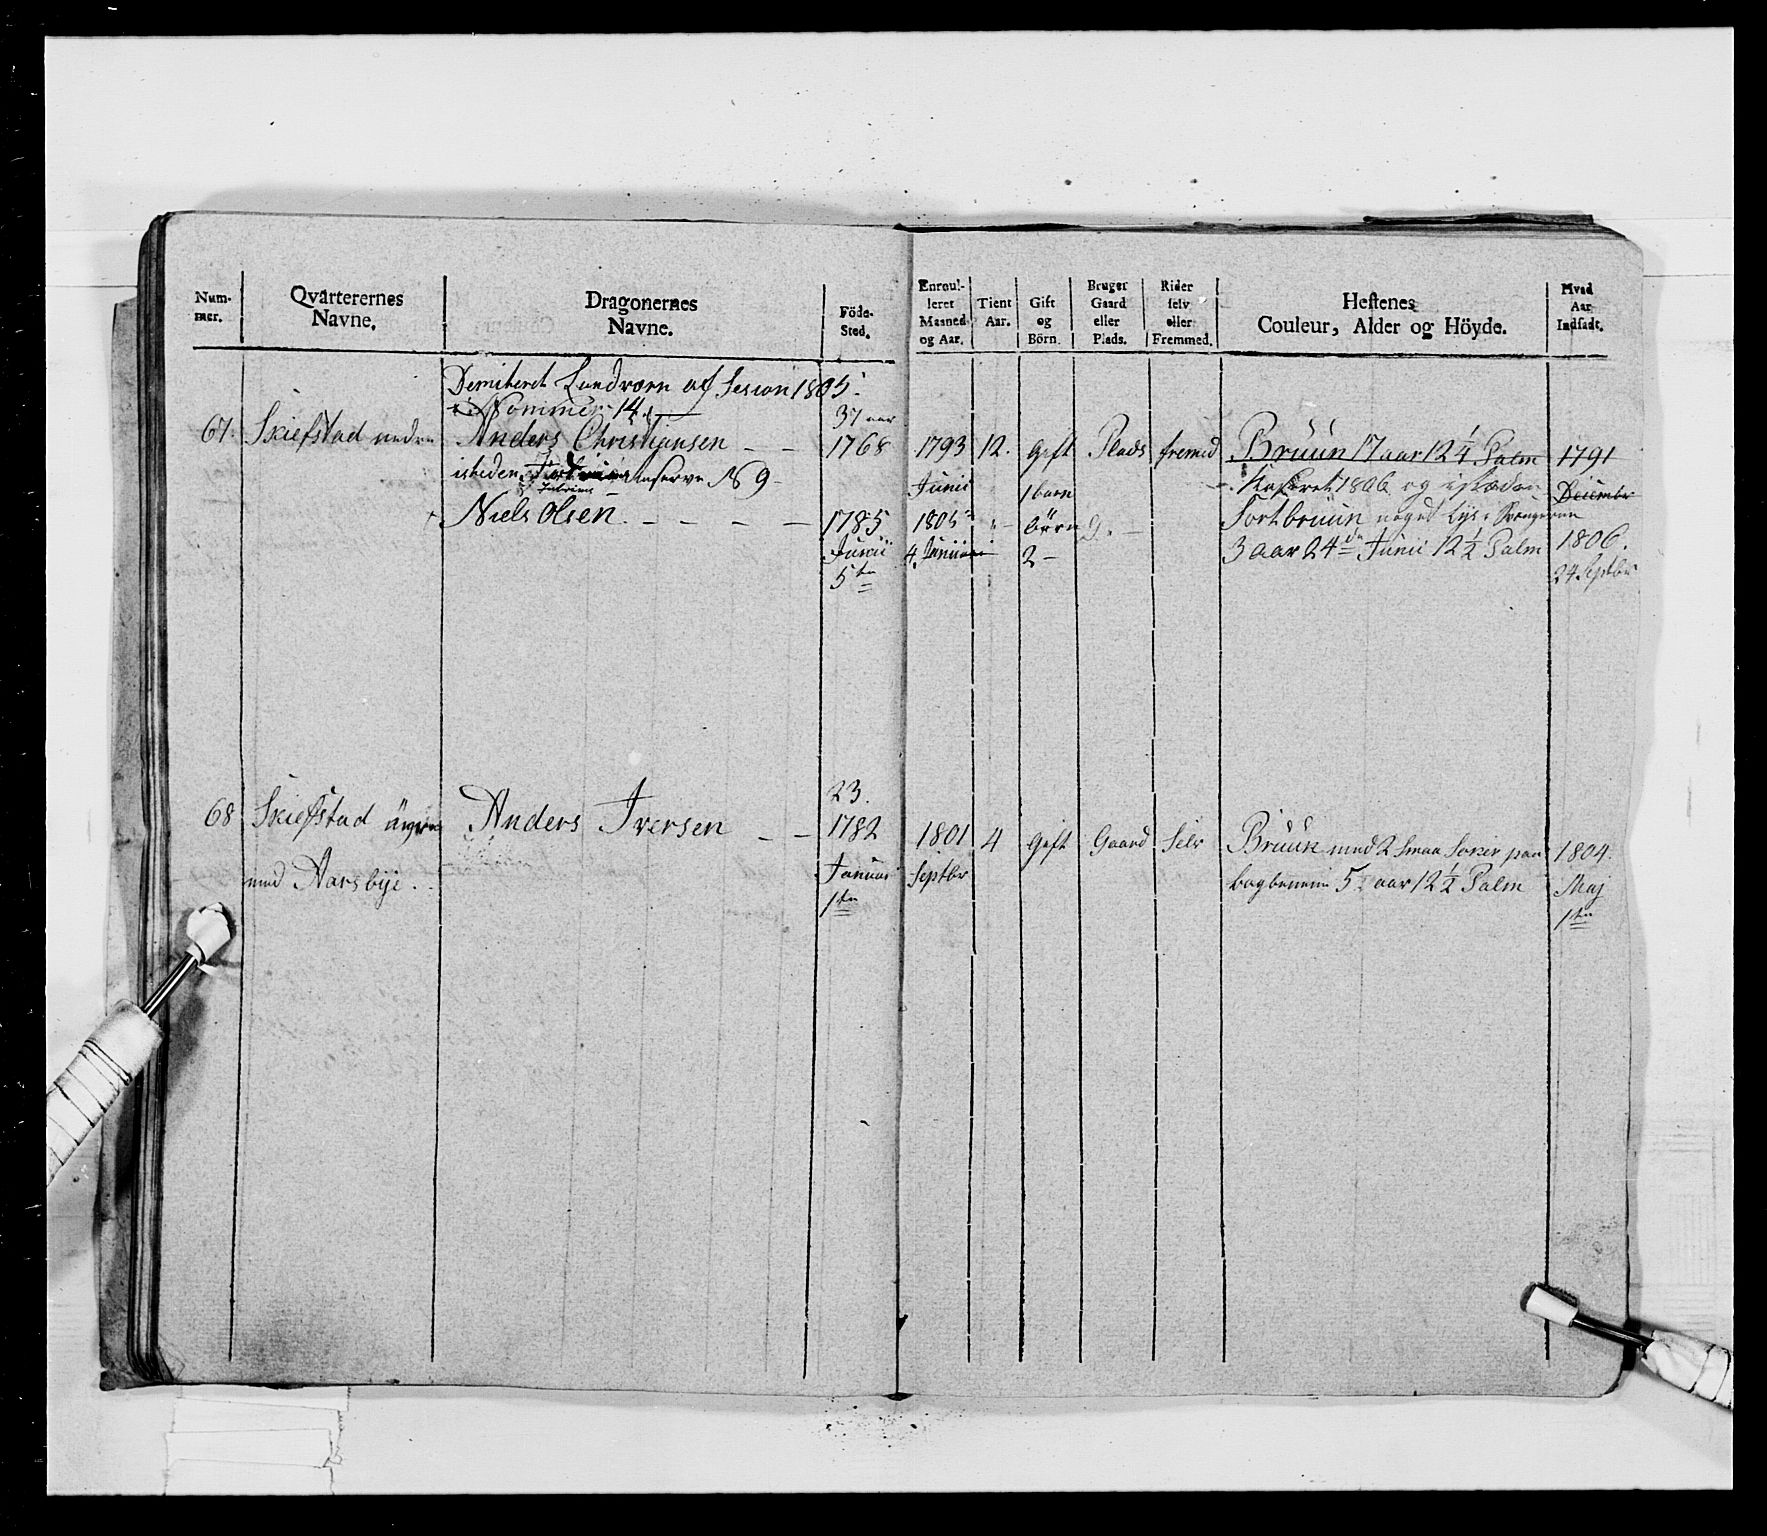 Num-
mer.
Qvarterernes
Navne.
Dragonernes
Navne.
Föde-
Sted.
Enroul-
leret
Maaned
og Aar.
Tient
Aar.
Gift
og
Börn.
Bruger
Gaard
eller
Plads.
Rider
selv
eller
Fremmed.
Hestenes
Couleur, Alder og Höyde.
Hvad
Aar
Indsadt.
Demiteret Landværn af Sesion 1805
Nommer 14
37 aar
67. Skiefstad nedre Anders Christiansen - - 1768 1793 12. Gift Plads fremed Bruun 17 aar 12 1/4 Palm 1791
isteden Reserve N 9 - Junii 1 barn Kaseret 1806 og isteden Decembr
Niels Olsen. - - - - 1785 1805 börn Sortbruun noget lys
Junii 4. Junii 2 - 3 aar 24de Junii 12 1/2 Palm 1806.
5te 24 Septbr
23.
68 Skiefstad Anders Iversen - - 1782 1801 4 Gift Gaard Selv Bruun med 2 smaa Soker paa 1804.
med Aarsbye. Januari Septbr bagbenene 5 aar 12 1/2 Palm Maj
1te 1te